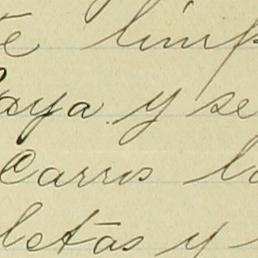 te limp
aya y se
Carros lo
letas y